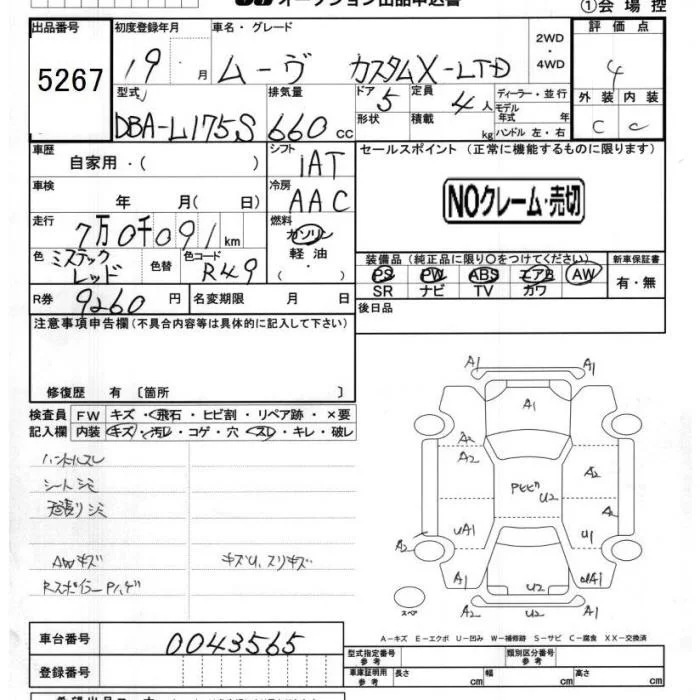 オークション出品申込書
①会場控
出品番号 初度登録年月 車名・グレード 評価点
5267 19 月 ムーヴ カスタムX-LTD 2WD・4WD 4
型式 排気量 ドア 定員 ディーラー・並行 外装 内装
DBA-L175S 660cc 5 4人 モデル年式 年 C C
形状 積載 kg ハンドル 左・右
車歴 シフト セールスポイント (正常に機能するものに限ります)
自家用・( ) IAT
車検 冷房 NOクレーム・売切
年 月( 日) AAC
走行 燃料
7万0千091km ガソリン
色 ミスティック 色替 色コード 軽油 装備品(純正品に限り〇をつけてください) 新車保証書
レッド R49 ( ・ ) PS PW ABS エアB AW 有・無
SR ナビ TV カワ
R券 9260円 名変期限 月 日 後日品
注意事項申告欄(不具合内容等は具体的に記入して下さい)
修復歴 有 〔箇所 〕
検査員 FW キズ・飛石・ヒビ割・リペア跡・×要
記入欄 内装 キズ・汚レ・コゲ・穴・スレ・キレ・破レ
ハンドルスレ
シートシミ
天張りシミ
AWキズ キズU、スリキズ
RスポイラーPハゲ
A1 A1
A1
A2
A2 A2
PヒビU2
A2
UA1 U1
A2
A1 U2 UA1
スペア
A2 U2 A1
A-キズ E-エクボ U-凹み W-補修跡 S-サビ C-腐食 XX-交換済
車台番号 0043565
型式指定番号 参考 類別区分番号 参考
登録番号 車庫証明用 参考 長さ cm 幅 cm 高さ cm